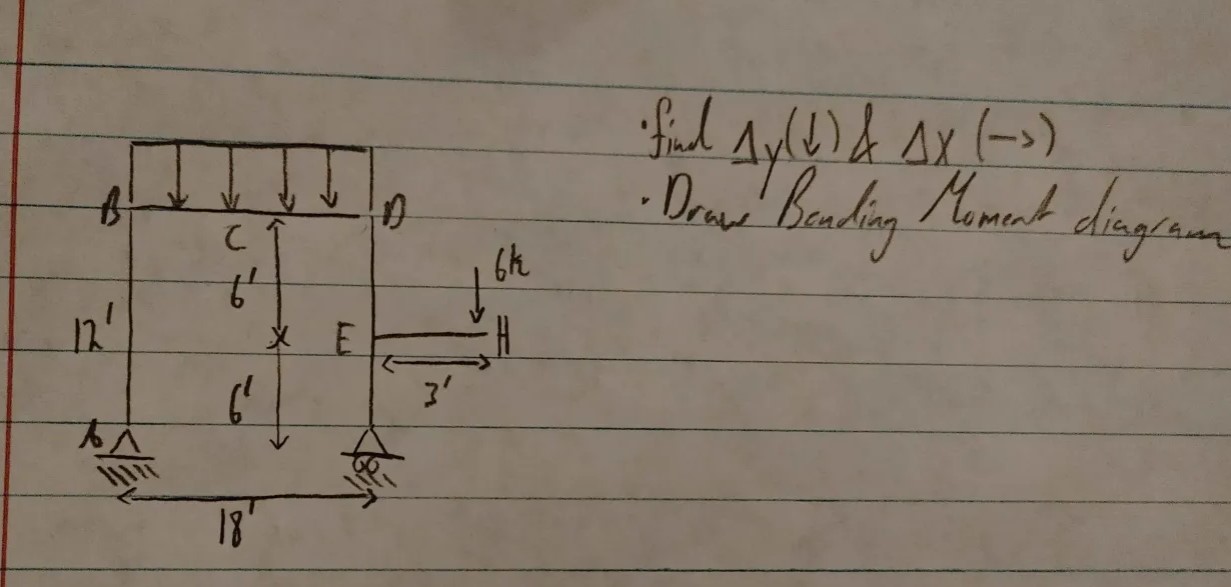 ·find Δy(↓) & Δx (→)
·Draw Bending Moment diagram
B
D
C
6k
6'
12'
E
H
3'
6'
A
18'